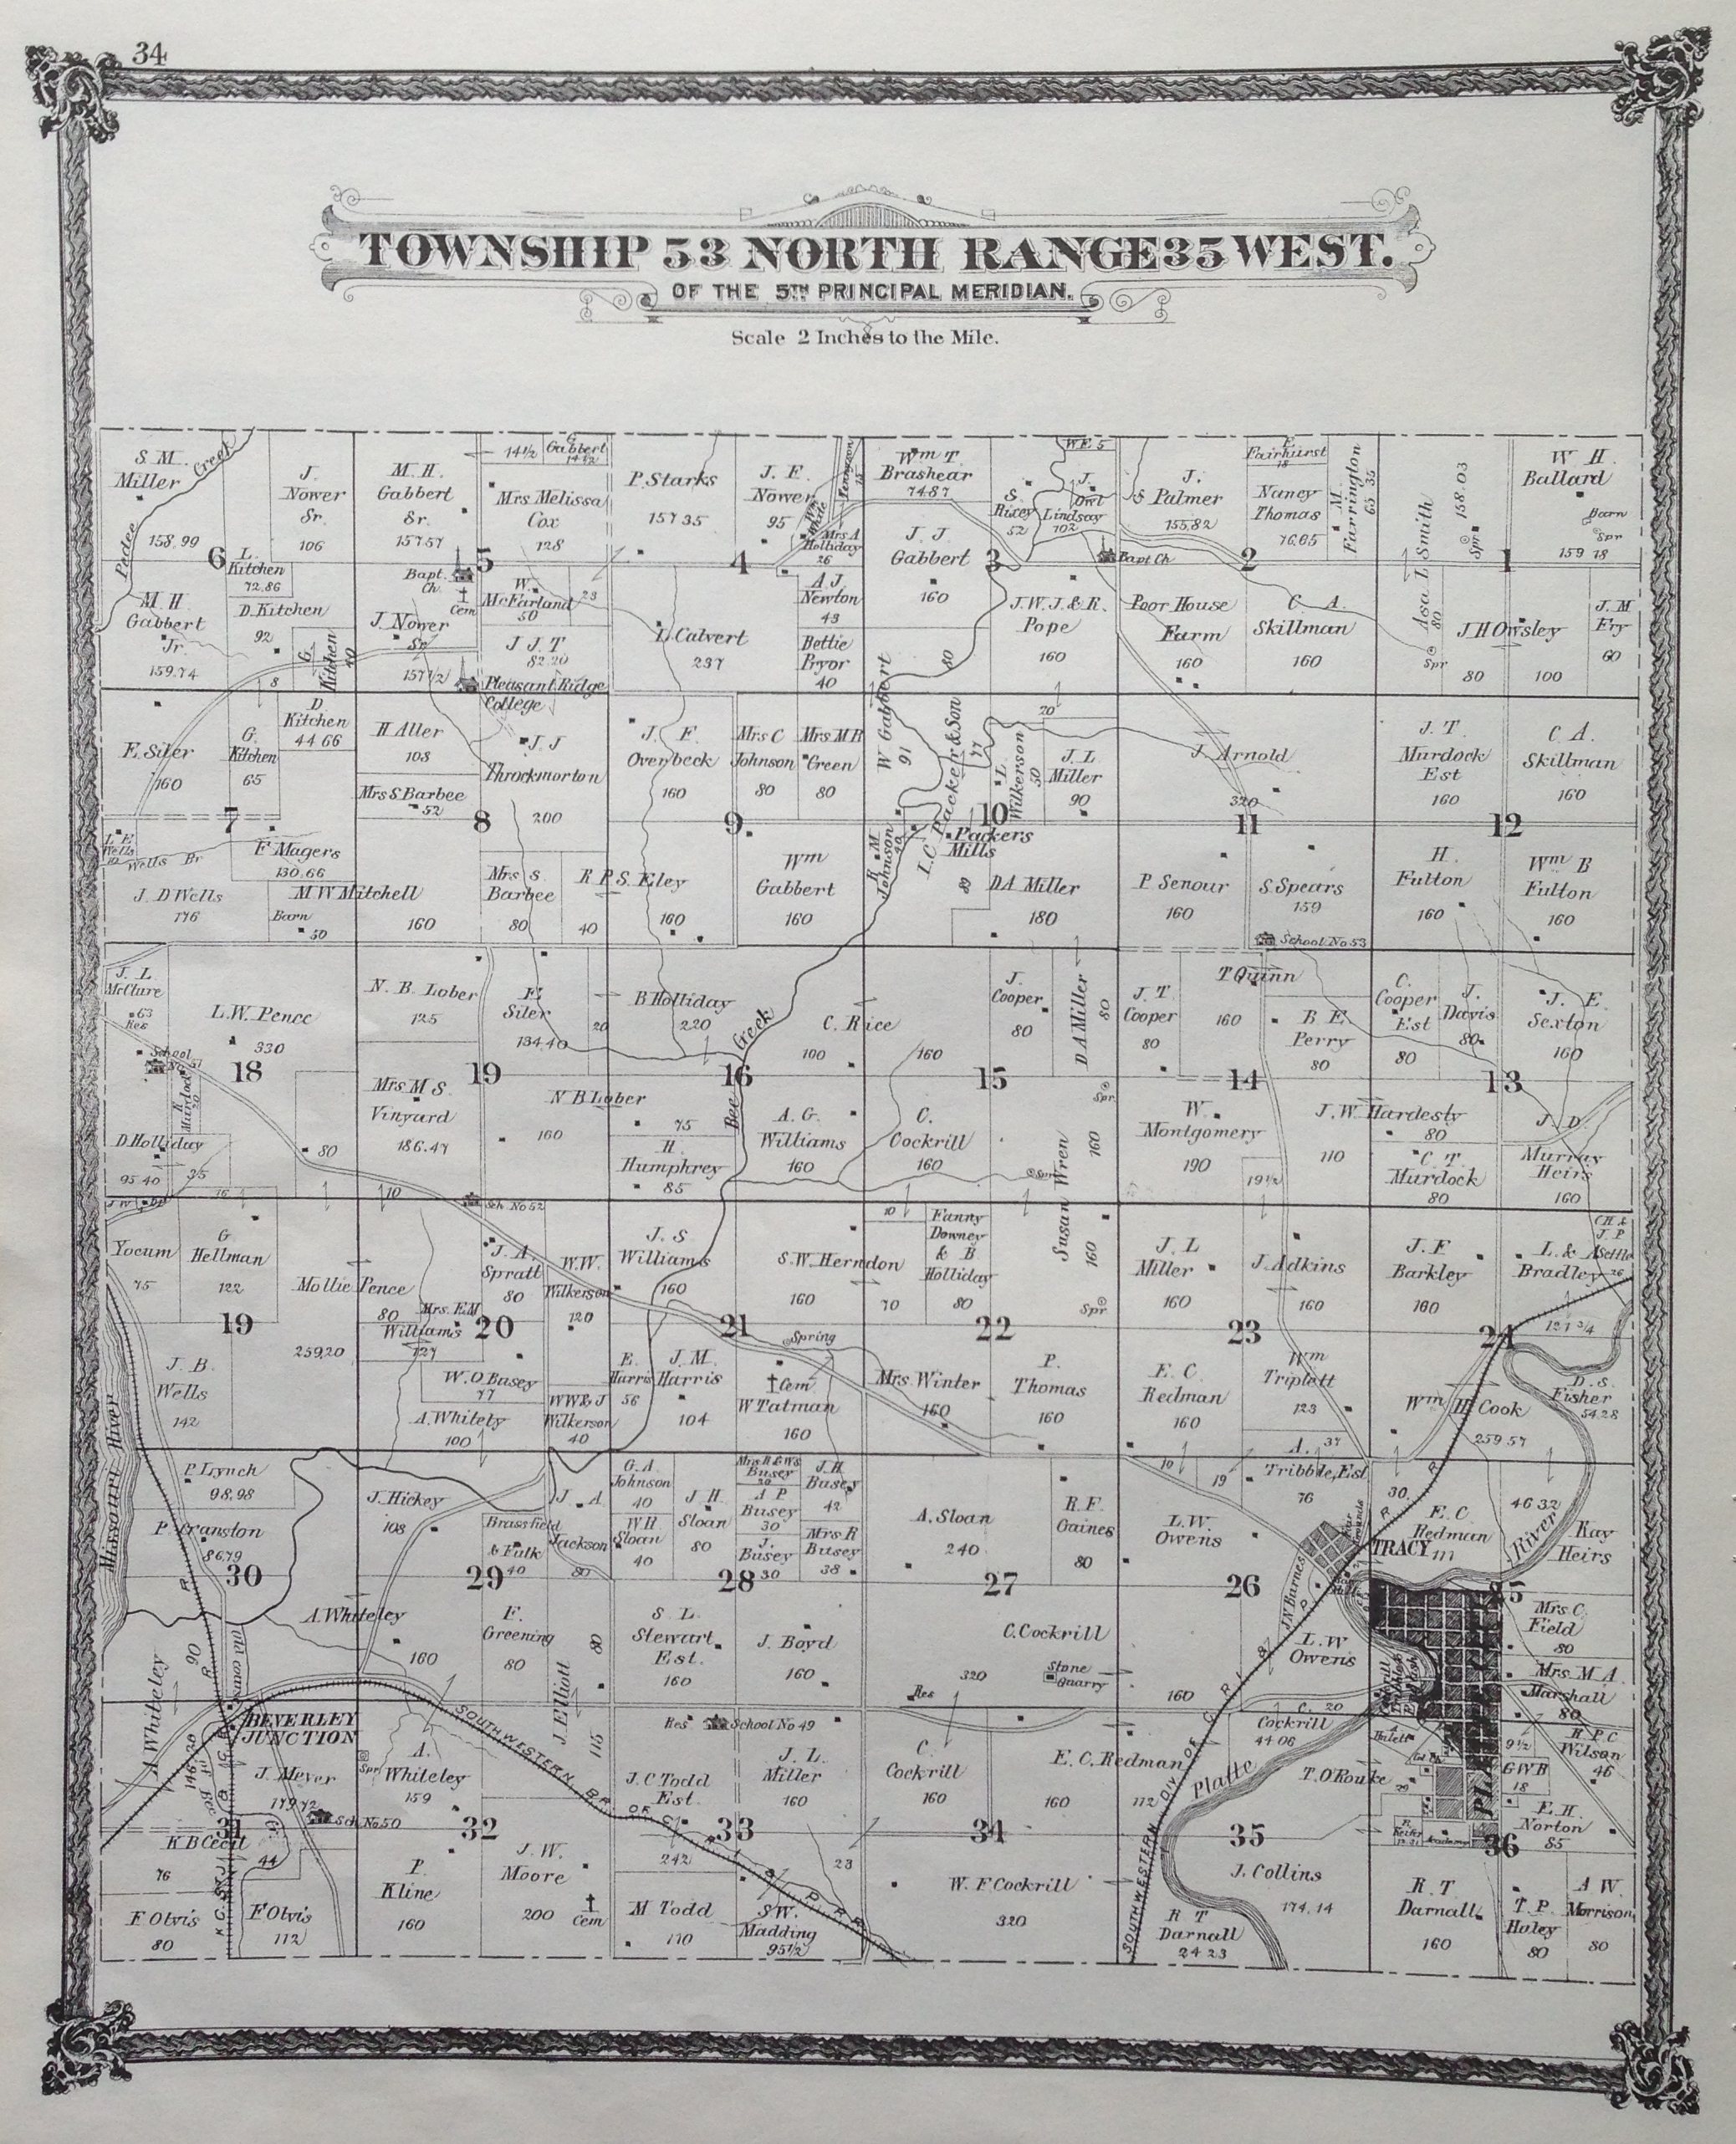 34
TOWNSHIP 53 NORTH RANGE 35 WEST.
OF THE 5TH PRINCIPAL MERIDIAN.
Scale 2 Inches to the Mile.
S. M. Miller
158.99
Creek
J. Nower Sr.
106
M. H. Gabbert Sr.
157.57
14 1/2
G. Gabbert
14 1/2
Mrs Melissa Cox
128
P. Starks
157 35
J. E. Nower
95
Mrs A Holliday
26
Wm T. Brashear
74.87
S. Rixey
52
J. Owl Lindsay
102
W E 5
J. S Palmer
155.82
E. Fairhurst
18
Nancy Thomas
76.65
M. Farrington
65 35
Asa L Smith
158.03
80
Spr
W H. Ballard
Barn
Spr
159 18
6
5
4
3
2
1
Bapt. Ch.
Cem
Bapt Ch
M. H. Gabbert Jr.
159.74
L. Kitchen
72.86
D. Kitchen
92
G. Kitchen
40
8
J. Nower Sr
157 1/2
W. McFarland
50
23
J J T
82.20
Pleasant Ridge College
L. Calvert
237
A J. Newton
43
Bettie Pryor
40
J. J. Gabbert
160
80
J. W. J. & R. Pope
160
Poor House Farm
160
C. A. Skillman
160
Spr
J. H Owsley
80
100
J. M Fry
60
E. Siler
160
G. Kitchen
65
D Kitchen
44 66
H. Aller
108
Mrs S. Barbee
52
J. J Throckmorton
200
J. F. Overbeck
160
Mrs C Johnson
80
Mrs M B Green
80
W Gabbert
91
L. C Packer & Son
77
L. Wilkerson
50
20
J. L Miller
90
J. Arnold
320
J. T. Murdock Est
160
C. A. Skillman
160
7
8
9
10
11
12
Packers Mills
Wells Br
J. D Wells
176
F Magers
130.66
M. W Mitchell
Barn
50
160
Mrs S. Barbee
80
R. P. S. Eley
40
160
Wm Gabbert
160
R M Johnson
40
89
D. A. Miller
180
P Senour
160
S. Spears
159
School No 53
H. Fulton
160
Wm B Fulton
160
J. L McClure
63
Res
School No 51
L. W. Pence
330
N. B. Lober
125
E Siler
134.40
20
B Holliday
220
Bee Creek
C. Rice
100
160
J. Cooper
80
D A Miller
80
J. T Cooper
80
T Quinn
160
B. E Perry
80
C. Cooper Est
80
J. Davis
80
J. E Sexton
160
18
19
16
15
14
13
Murdock
20
D. Holliday
95 40
35
80
16
Mrs M S. Vinyard
186.47
10
N B Lober
160
75
H. Humphrey
85
A. G. Williams
160
C. Cockrill
160
Spr
Spr
Susan Wren
160
160
W. Montgomery
190
19 1/2
J. W. Hardesty
80
110
C. T. Murdock
80
J. D. Murray Heirs
160
Yocum
75
G Hellman
122
Mollie Pence
80
259.20
Sch. No 52
J. A. Spratt
80
Mrs. E M Williams
127
W. W. Wilkerson
120
J. S Williams
160
S. W. Herndon
160
70
10
Fanny Downey & B Holliday
80
Spr
J. L Miller
160
J. Adkins
160
J. F Barkley
160
L. & A Bradley
121 3/4
Settle
26
19
20
21
22
23
24
Spring
Missouri River
J. B. Wells
142
W. O Busey
77
A. Whitely
100
W W & J Wilkerson
40
E. Harris
56
J. M. Harris
104
Cem
W Tatman
160
Mrs. Winter
160
P. Thomas
160
E. C. Redman
160
Wm Triplett
123
A. Tribble, Est
37
76
Wm H Cook
259 57
D. S. Fisher
54.28
P Lynch
98.98
P. Cranston
86.79
J. Hickey
108
Brassfield & Faulk
40
J. A Jackson
80
G. A Johnson
40
W H Sloan
40
J. H. Sloan
80
Mrs R & W S Busey
20
A P Busey
30
J. Busey
30
J. H. Busey
42
Mrs. R Busey
38
A. Sloan
240
R. F. Gaines
80
10
19
L. W. Owens
TRACY
30
E. C Redman
111
46 32
River
Kay Heirs
30
29
28
27
26
25
A. Whiteley
160
A Whiteley
90
146.20
F. Greening
80
J. Elliott
80
115
S. L. Stewart Est.
160
J. Boyd
160
C. Cockrill
320
Res
Stone Quarry
160
J. N Barnes
L. W Owens
Mrs. C. Field
80
Mrs. M. A. Marshall
80
BEVERLEY JUNCTION
SOUTHWESTERN BR. OF C. R. I. & P. R R.
J. Meyer
179.72
Sch. No. 50
Spr
A. Whiteley
159
Res
School No 49
J. C Todd Est.
242
J. L. Miller
160
23
C. Cockrill
160
E. C. Redman
160
112
C. Cockrill
44 06
20
Platte
T. O'Rouke
9 1/2
G W B
18
R. P C Wilson
46
E. H. Norton
85
SOUTHWESTERN DIV. OF C. R. I. & P. R
31
32
33
34
35
36
K B Cecil
76
44
F Olvis
80
F Olvis
112
P. Kline
160
J. W. Moore
200
Cem
M Todd
110
S. W. Madding
95 1/2
W. F Cockrill
320
R T Darnall
24 23
J. Collins
174.14
Academy
R. T Darnall
160
T. P. Haley
80
A W. Morrison
80